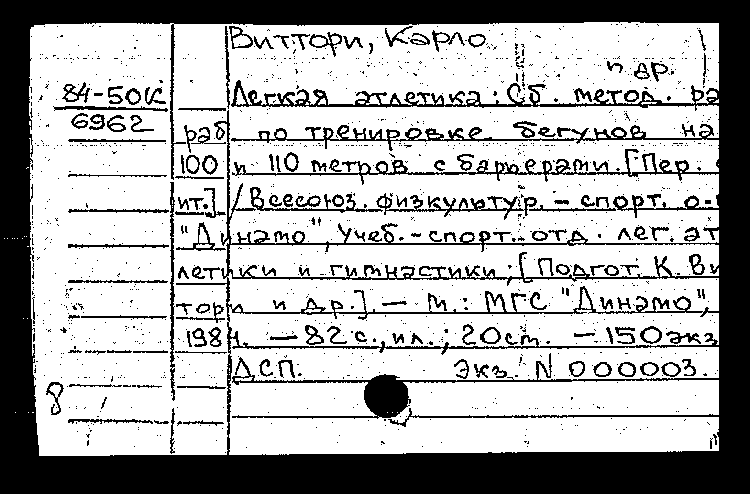 Виттори, Карло
и др.
84-50К Легкая атлетика: Сб. метод. ра
6962 раб. по тренировке бегунов на
100 и 110 метров с барьерами. [Пер. с
ит.] / Всесоюз. физкультур.-спорт. о-
"Динамо", Учеб.-спорт. отд. лег. ат
летики и гимнастики; [Подгот. К. Ви
тори и др.]. — М.: МГС "Динамо",
1984. — 82 с., ил.; 20 ст. — 150 экз
ДСП. Экз. N 000003.
8